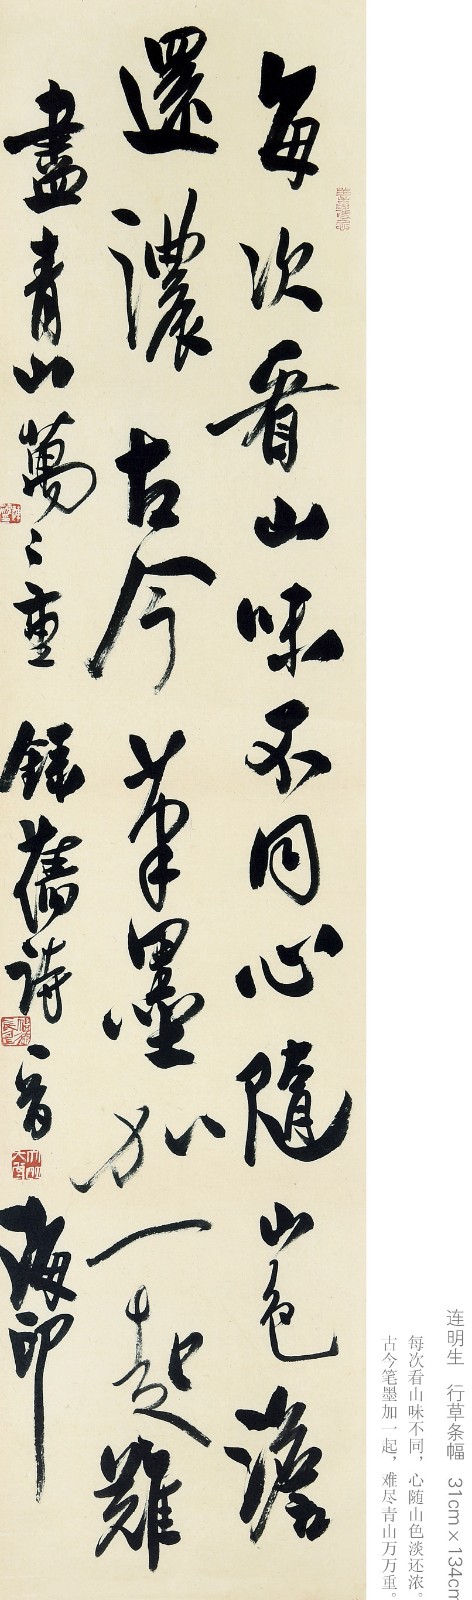 每次看山味不同心隨山色澹
還濃古今筆墨加一起難
盡青山萬〻重錄舊詩一首海印
连明生 行草条幅 31cm×134cm
每次看山味不同，心随山色淡还浓。
古今笔墨加一起，难尽青山万万重。